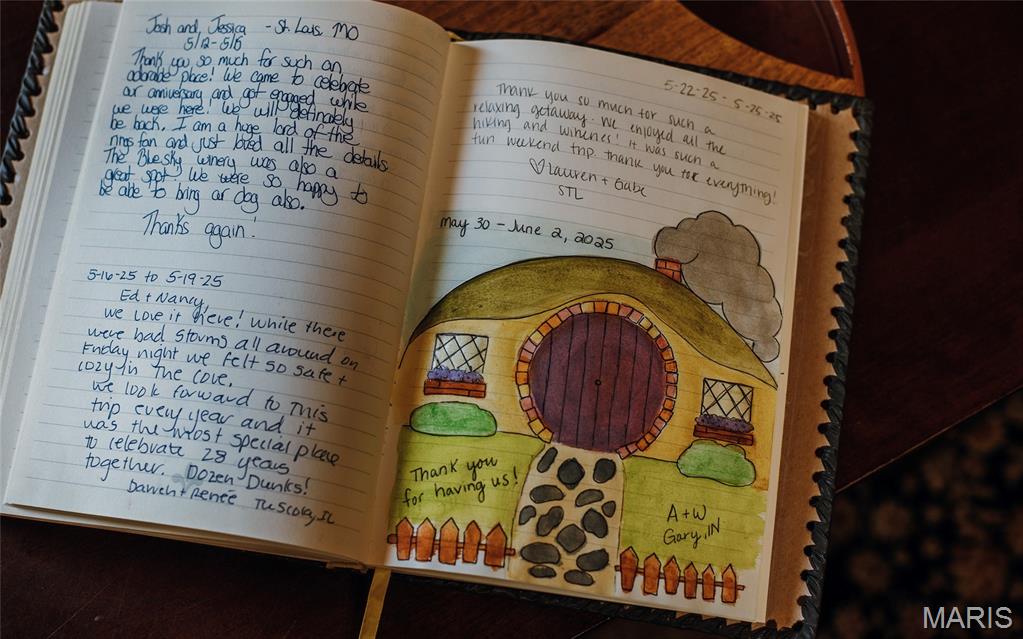 Josh and Jessica - St. Louis, MO
5/12-5/16
Thank you so much for such an
adorable place! We came to celebrate
our anniversary and got engaged while
we were here! We will definately
be back. I am a huge lord of the
rings fan and just loved all the details
The Blue sky winery was also a
great spot! We were so happy to
be able to bring our dog also.
Thanks again!
5-16-25 to 5-19-25
Ed + Nancy,
we Love it here! While there
were bad storms all around on
Friday night we felt so safe +
cozy in the cove.
we look forward to this
trip every year and it
was the most special place
to celebrate 28 years
together. Dozen Dunks!
Darren + Renée Tuscola, IL
5-22-25 - 5-25-25
Thank you so much for such a
relaxing getaway. We enjoyed all the
hiking and wineries! It was such a
fun weekend trip. Thank you for everything!
♡Lauren + Gabe
STL
may 30 - June 2, 2025
Thank you
for having us!
A + W
Gary, IN
MARIS